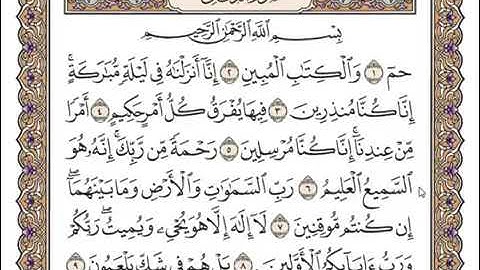 بِسْمِ ٱللَّهِ ٱلرَّحْمَٰنِ ٱلرَّحِيمِ
حمٓ ١ وَٱلْكِتَٰبِ ٱلْمُبِينِ ٢ إِنَّآ أَنزَلْنَٰهُ فِى لَيْلَةٍ مُّبَٰرَكَةٍ ۚ
إِنَّا كُنَّا مُنذِرِينَ ٣ فِيهَا يُفْرَقُ كُلُّ أَمْرٍ حَكِيمٍ ٤ أَمْرًا
مِّنْ عِندِنَآ ۚ إِنَّا كُنَّا مُرْسِلِينَ ٥ رَحْمَةً مِّن رَّبِّكَ ۚ إِنَّهُۥ هُوَ
ٱلسَّمِيعُ ٱلْعَلِيمُ ٦ رَبِّ ٱلسَّمَٰوَٰتِ وَٱلْأَرْضِ وَمَا بَيْنَهُمَآ ۖ
إِن كُنتُم مُّوقِنِينَ ٧ لَآ إِلَٰهَ إِلَّا هُوَ يُحْىِۦ وَيُمِيتُ ۖ رَبُّكُمْ
وَرَبُّ ءَابَآئِكُمُ ٱلْأَوَّلِينَ ٨ بَلْ هُمْ فِى شَكٍّ يَلْعَبُونَ ٩